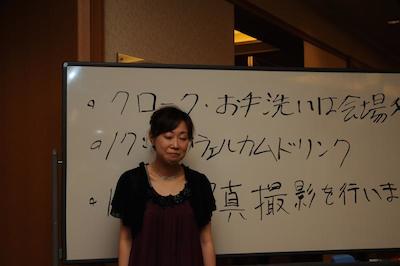 ・クローク・お手洗いは会場
・ウェルカムドリンク
・真撮影を行いま